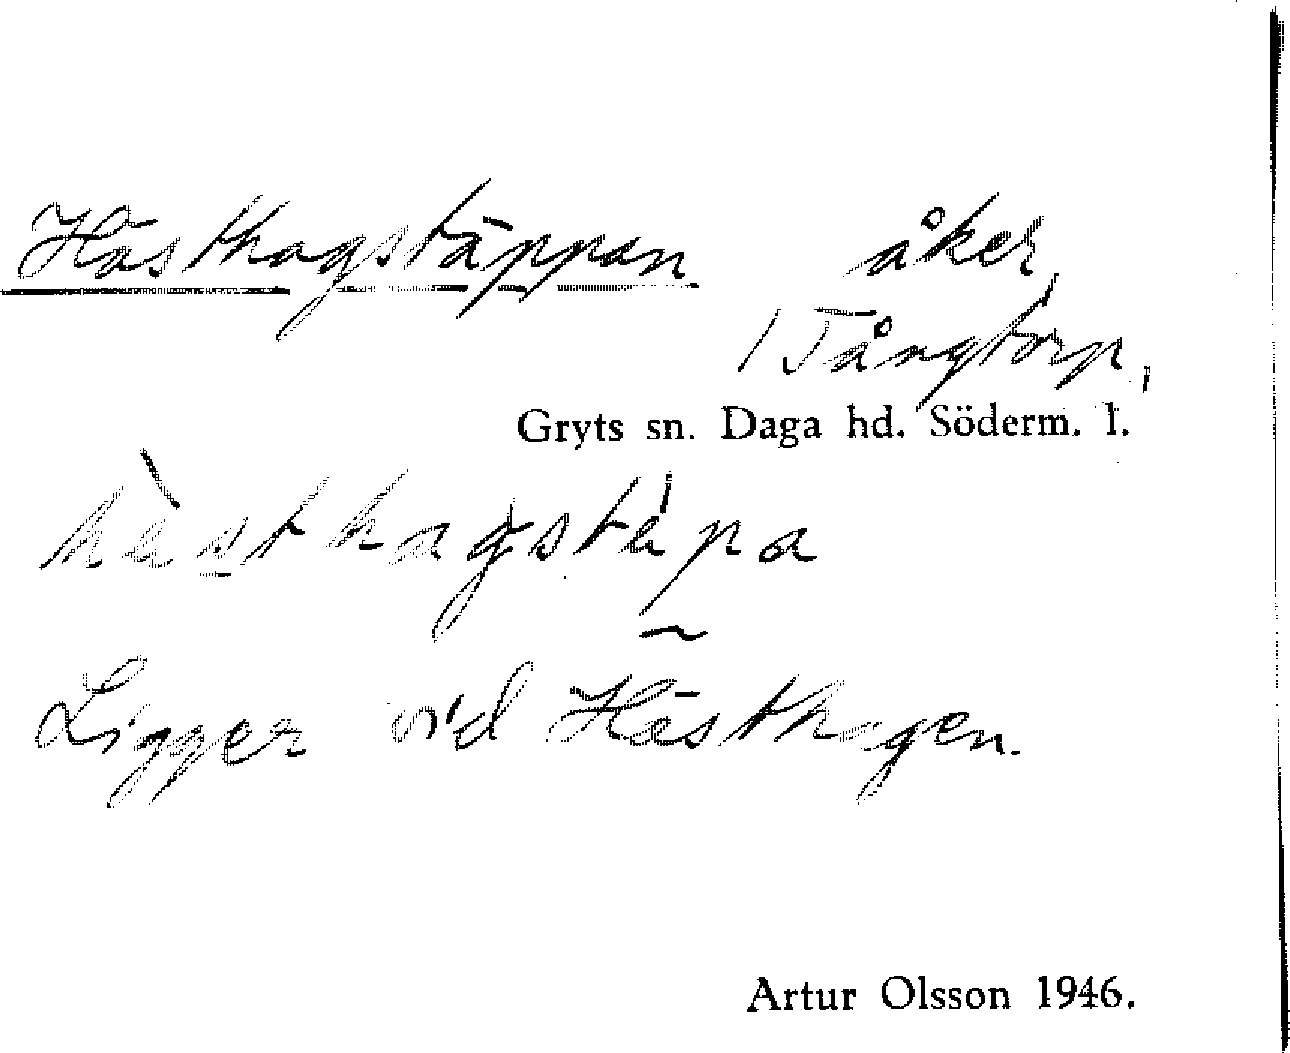 Hästhagstäppan åker,
/ Tångtorp,
Gryts sn. Daga hd. Söderm. l.
hàsthagstápa
Ligger vid Hästhagen.
Artur Olsson 1946.